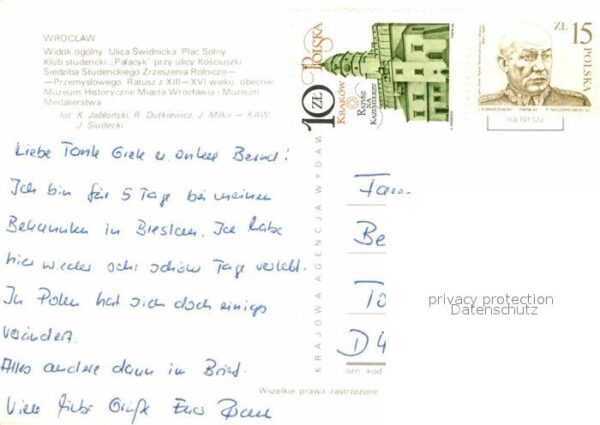 WROCŁAW
Widok ogólny. Ulica Świdnicka. Plac Solny
Klub studencki „Pałacyk" przy ulicy Kościuszki
Siedziba Studenckiego Zrzeszenia Rolniczo—
—Przemysłowego. Ratusz z XIII—XVI wieku, obecnie
Muzeum Historyczne Miasta Wrocławia i Muzeum
Medalierstwa
fot. K. Jabłoński, R. Dutkiewicz, J. Miłka — KAW
J. Siudecki
Liebe Tante Grete u. Onkel Bernd!
Ich bin für 5 Tage bei meinen
Bekannten in Breslau. Ich habe
hier wieder sehr schöne Tage verlebt.
In Polen hat sich doch einiges
verändert.
Alles andere dann im Brief.
Viele liebe Grüße Eure
10 ZŁ
POLSKA
KRAKÓW
RATUSZ
NA
KAZIMIERZU
ZŁ 15
POLSKA
na NFOZ
KRAJOWA AGENCJA WYDAW
Fam
Be
To
D 4
ozn. kod
Wszelkie prawa zastrzeżone
privacy protection
Datenschutz